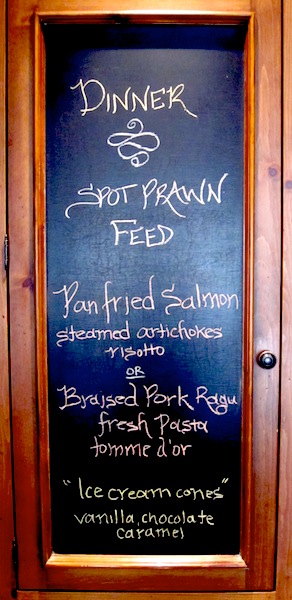 DINNER
SPOT PRAWN
FEED
Panfried Salmon
steamed artichokes
risotto
OR
Braised Pork Ragu
fresh Pasta
tomme d'or
"Ice cream cones"
vanilla, chocolate
caramel